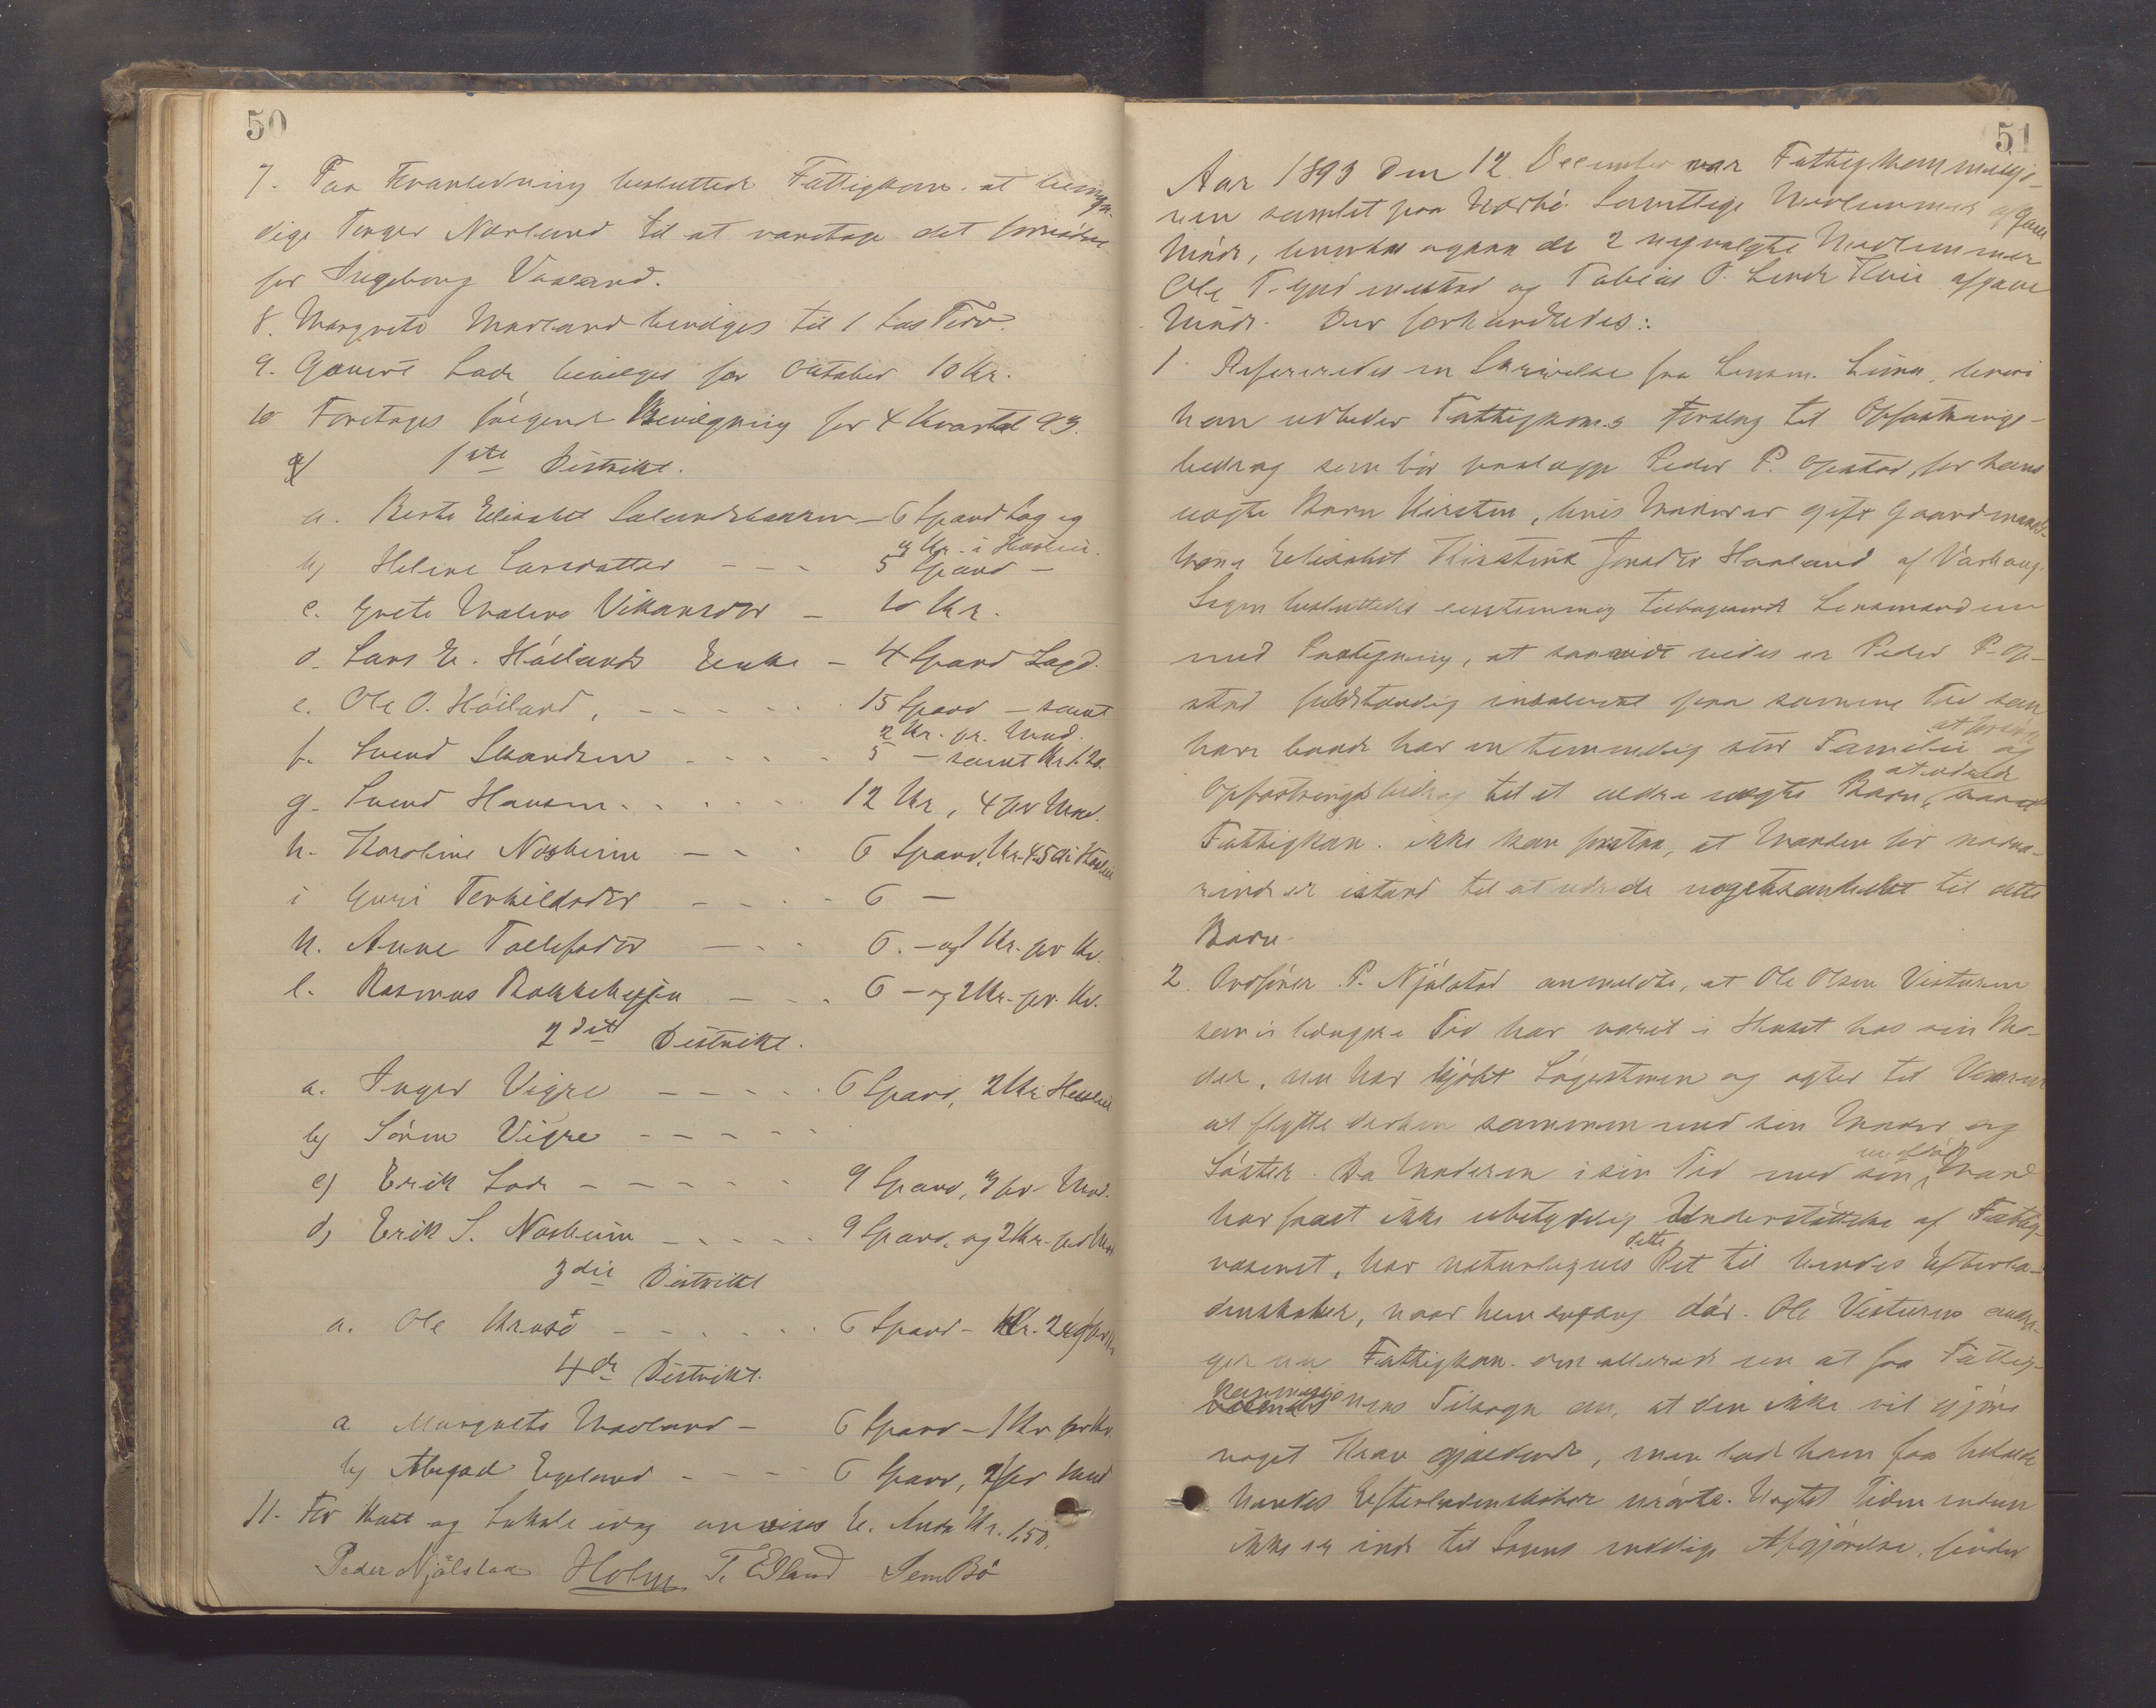 50
7. Paa Foranledning besluttede Fattigkom. at bemyn-
dige Torger Nærland til at varetage det fornødne
for Ingeborg Vaaland.
8. Margrete Madland bevilges til 1 Las Torv.
9. Gemeve Lode bevilges for Oktober 10 Kr.
10 Foretoges følgende Bevilgning for 4 Kvartal 93.
1ste Distrikt.
a. Berte Elisabet Salandsbakken – 6 Spand Sag og
3 Kr. i Husleie.
b) Helene Larsdatter – – – 5 Spand –
c. Grete Malene Vikansdtr – 10 Kr.
d. Lars E. Hølland Enke – 4 Spand Sagd.
e. Ole O. Høiland, – – – – 15 Spand – samt
2 Kr. pr. Mnd.
f. Svend Skandsen – – – – 5 – samt Kr. 1.20.
g. Svend Hansen – – – – 12 Kr, 4 pr Mnd.
h. Karoline Nosheim – – – 6 Spand, Kr. 4.50 i Husleie
i Guri Terkildsdtr – – – – 6 –
k. Anne Tollefsdtr – – – 6. – og 1 Kr. pr Kv.
l. Rasmus Bakkehejen – – – 6 – og 2 Kr. pr. Kv.
2det Distrikt.
a. Inger Vigre – – – – 6 Spand, 2 Kr Husleie
b) Søren Vigre – – – – –
c) Erik Lode – – – – – 9 Spand, 3 pr Mnd.
d) Erik S. Nosheim – – – – 9 Spand, og 2 Kr. pr Mnd
3die Distrikt
a. Ole Krusø – – – – – 6 Spand – Kr. 2
4de Distrikt.
a Margrete Madland – 6 Spand – 1 Kr pr Kv.
b) Abigael Egeland – – – 6 Spand, 2 pr Mnd
11. For Kost og Lokale idag anvises E. Anda Kr. 1.50.
Peder Njølstad Holm T. Edland Sem Bø
51
Aar 1893 den 12 December var Fattigkommissjo-
nen samlet paa Nærbø. Samtlige Medlemmer af gaml
Møde, hvorhos ogsaa de 2 nyvalgte Medlemmer
Ole T. Gudmestad og Tobias O. Lende Kvie afgave
Møde. Der forhandledes:
1. Refereredes en Skrivelse fra Lensm. Lima, hvori
han udbeder Fattigkom.s Forslag til Opfostrings-
bidrag som bør paalægges Peder P. Opstad, for hans
uægte Barn Kirsten, hvis Moder er gift Gaardmands-
kone Elisabet Kirstine Jonsdtr Haaland af Varhaug.
Sagen besluttedes eenstemmig tilbagesendt Lensmanden
med Paategning, at saavidt vides er Peder P. Op-
stad fuldstændig insolvent paa samme Tid som
han baade har en temmelig stor Familie at forsørge og
Opfostringsbidrag til et ældre uægte Barn, at udrede
Fattigkom. ikke kan forstaa, at Manden for nærvæ-
rende er istand til at udrede nogetsomhelst til dette
Barn.
2. Ordfører P. Njølstad anmeldte, at Ole Olsen Visturen
som i længere Tid har været i Huset hos sin Mo-
der, nu har kjøbt Løgestuen og agter til Vaaren
at flytte derhen sammen med sin Moder og
Søster. Da Moderen i sin Tid med sin nu afdøde Mand
har faaet ikke ubetydelig Understøttelse af Fattig-
væsenet, har naturligvis dette Ret til hendes Efterla-
denskaber, naar hun engang dør. Ole Visturen andra-
ger nu Fattigkom. om allerede nu at faa Fattig-
kommissjonens Tilsagn om, at den ikke vil gjøre
noget Krav gjældende, men lade ham faa beholde
hendes Efterladenskaber urørte. Uagtet Tiden endnu
ikke er inde til Sagens endelige Afgjørelse, finder